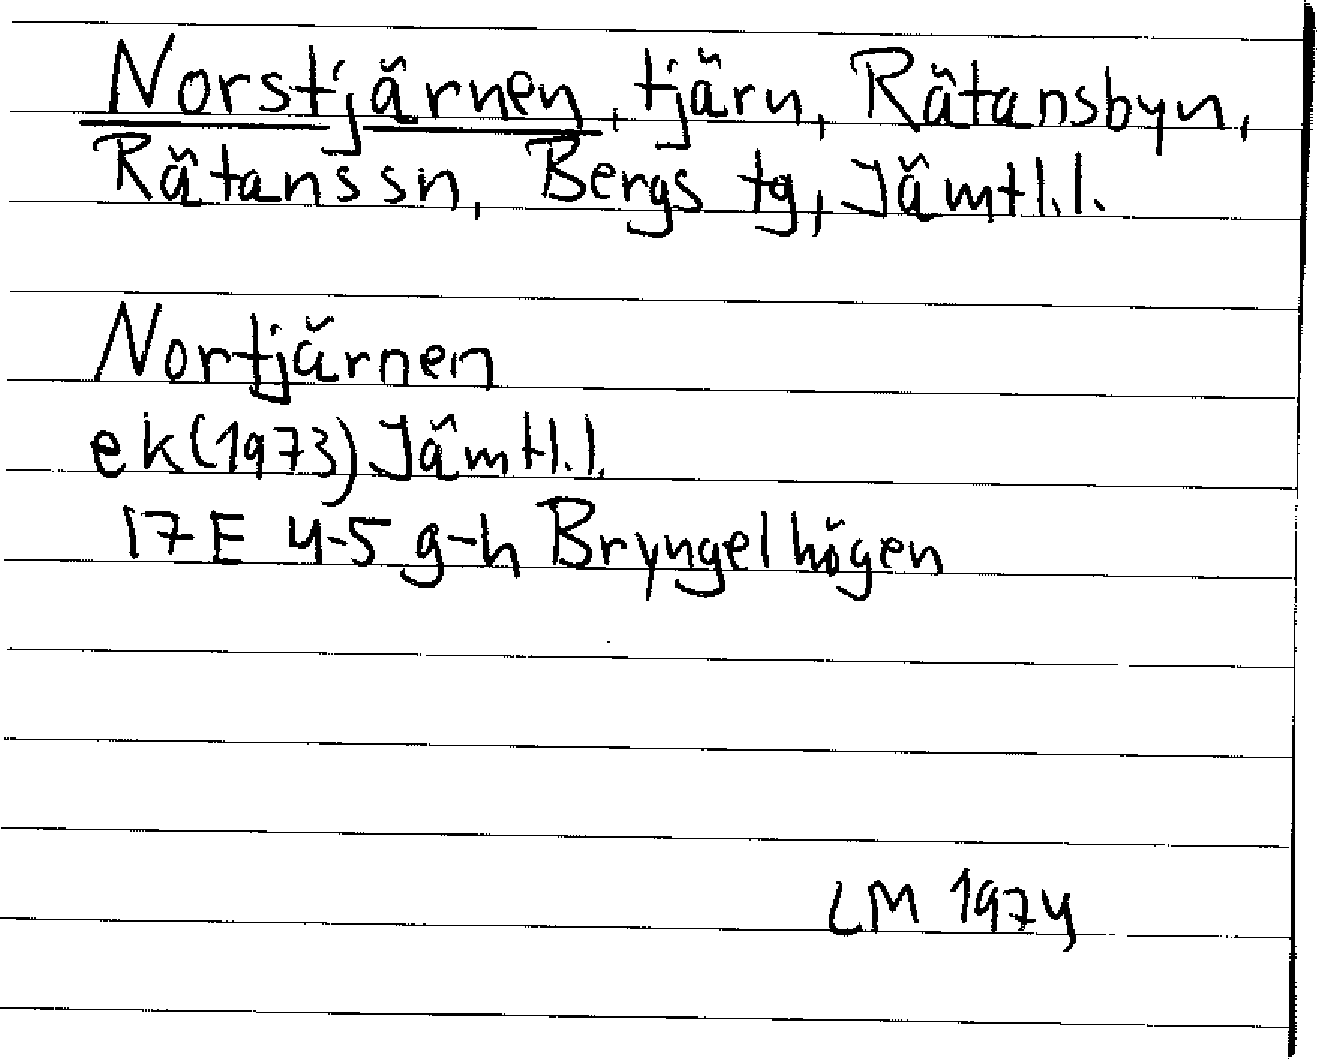 Norstjärnen, tjärn, Rätansbyn,
Rätans sn, Bergs tg, Jämtl.l.
Nortjärnen
ek (1973) Jämtl.l.
17E 4-5 g-h Bryngelhögen
LM 1974